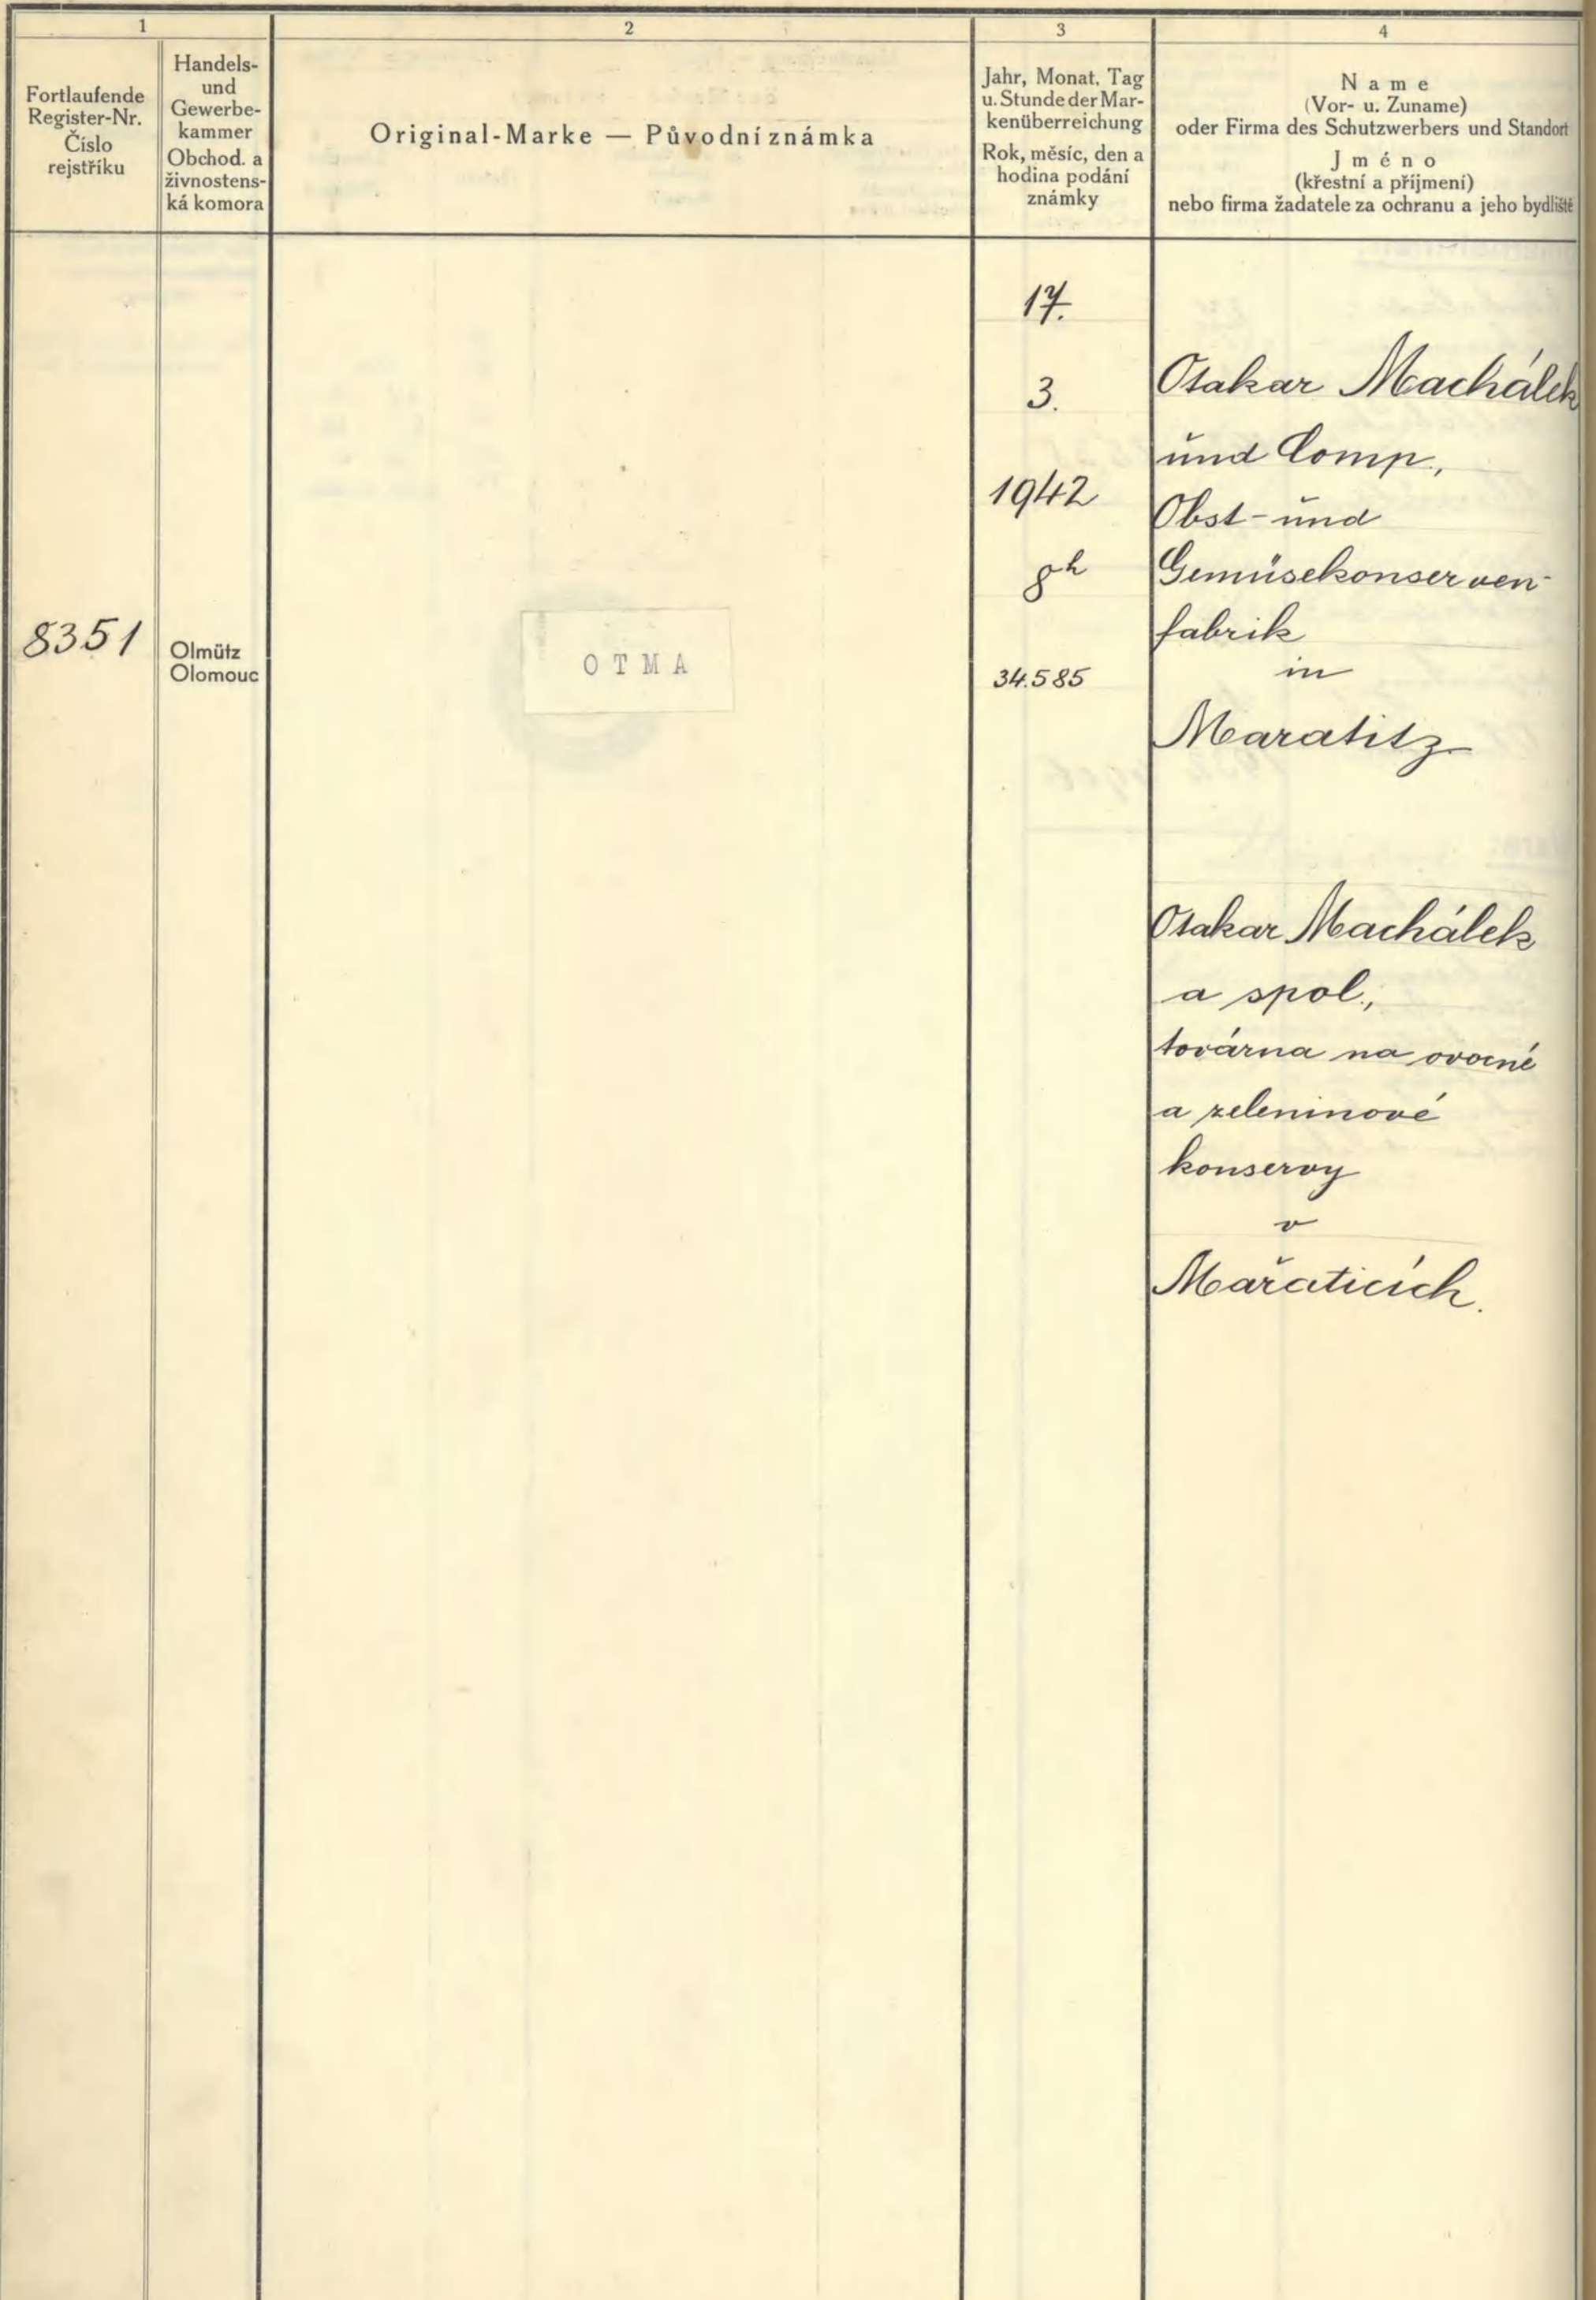 1
Fortlaufende
Register-Nr.
Číslo
rejstříku
Handels-
und
Gewerbe-
kammer
Obchod. a
živnostens-
ká komora
2
Original-Marke — Původní známka
3
Jahr, Monat, Tag
u. Stunde der Mar-
kenüberreichung
Rok, měsíc, den a
hodina podání
známky
4
Name
(Vor- u. Zuname)
oder Firma des Schutzwerbers und Standort
Jméno
(křestní a příjmení)
nebo firma žadatele za ochranu a jeho bydliště
8351
Olmütz
Olomouc
OTMA
17.
3.
1942
8h
34.585
Otakar Machálek
und Comp.,
Obst- und
Gemüsekonserven-
fabrik
in
Maratitz
Otakar Machálek
a spol.,
továrna na ovocné
a zeleninové
konservy
v
Mařaticích.